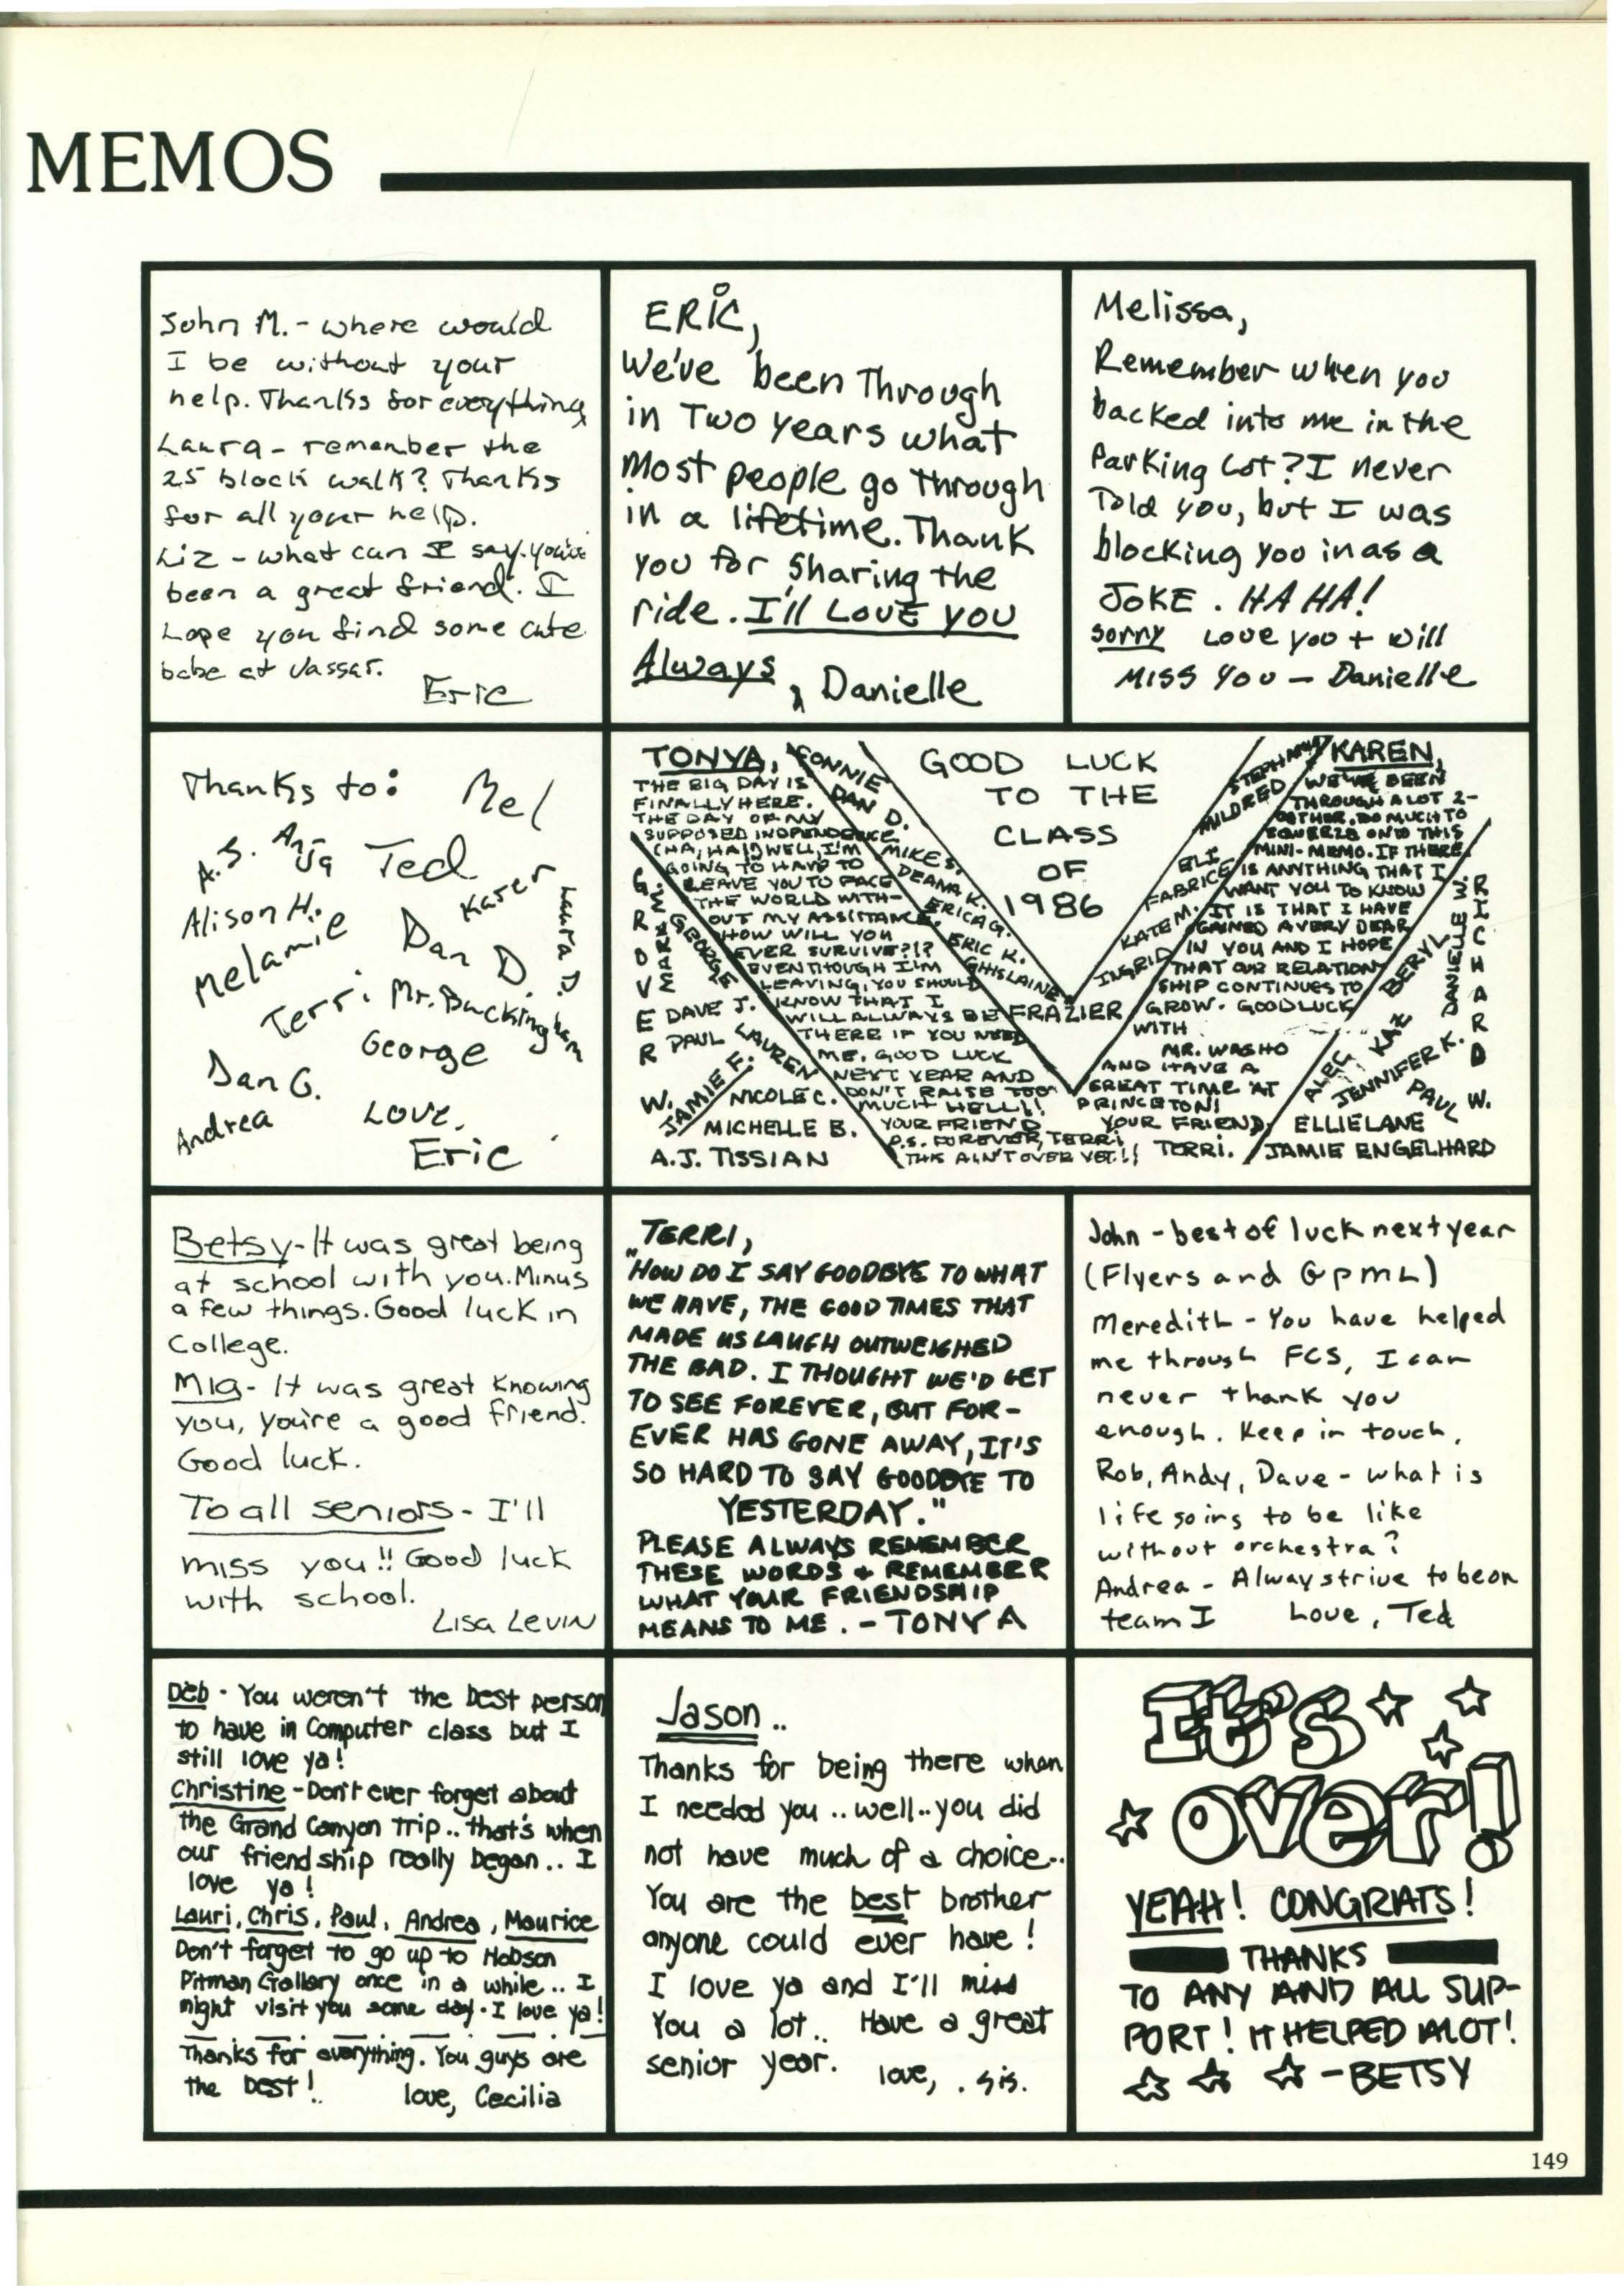 MEMOS
John M. - where would
I be without your
help. Thanks for everything
Laura - remember the
25 block walk? Thanks
for all your help.
Liz - what can I say. you've
been a great friend. I
hope you find some cute
babe at Vassar.
Eric
ERIC,
We've been Through
in Two years what
Most people go Through
in a lifetime. Thank
you for sharing the
ride. I'll LOVE you
Always, Danielle
Melissa,
Remember when you
backed into me in the
Parking Lot? I never
Told you, but I was
blocking you in as a
JOKE. HA HA!
sorry Love you + will
MISS YOU - Danielle
Thanks to: Mel
A.S. Anja Ted
Karen
Laura D.
Alison H.
Melamie
Dan D.
Terri Mr. Buckingham
George
Dan G.
Andrea
Love,
Eric
TONYA,
THE BIG DAY IS
FINALLY HERE.
THE DAY OF MY
SUPPOSED INDPENDENCE
(HA, HA!) WELL, I'M
GOING TO HAVE TO
LEAVE YOU TO FACE
THE WORLD WITH-
OUT MY ASSISTANCE.
HOW WILL YOU
EVER SURVIVE?!?
EVENTHOUGH I'M
LEAVING, YOU SHOULD
KNOW THAT I
WILL ALWAYS BE
THERE IF YOU NEED
ME. GOOD LUCK
NEXT YEAR AND
DON'T RAISE TOO
MUCH HELL!!
YOUR FRIEND
FOREVER, TERRI
P.S.
THIS AIN'T OVER YET!!
CONNIE
DAN D.
MIKE S.
DEANA K.
ERICA G.
ERIC K.
GHISLAINE
FRAZIER
GOOD LUCK
TO THE
CLASS
OF
1986
STEPHANY
MILDRED
ELI
FABRICE
KATE M.
INGRID
KAREN,
WE'VE BEEN
THROUGH A LOT 2-
GETHER. SO MUCH TO
SQUEEZE ONTO THIS
MINI-MEMO. IF THERE
IS ANYTHING THAT I
WANT YOU TO KNOW
IT IS THAT I HAVE
GAINED A VERY DEAR
IN YOU AND I HOPE
THAT OUR RELATION
SHIP CONTINUES TO
GROW. GOODLUCK
WITH
MR. WASHO
AND HAVE A
GREAT TIME AT
PRINCETON!
YOUR FRIEND,
TERRI.
GROVER W.
MARK W.
GEORGE
DAVE J.
PAUL
LAUREN
JAMIE F.
NICOLE C.
MICHELLE B.
A.J. TISSIAN
RICHARD W.
DANIELLE W.
BERYL
KAZ
ALEC
JENNIFER K.
PAUL
ELLIE LANE
JAMIE ENGELHARD
Betsy - It was great being
at school with you. Minus
a few things. Good luck in
College.
MIG - It was great knowing
you, you're a good friend.
Good luck.
To all seniors - I'll
miss you!! Good luck
with school.
Lisa Levin
TERRI,
"HOW DO I SAY GOODBYE TO WHAT
WE HAVE, THE GOOD TIMES THAT
MADE US LAUGH OUTWEIGHED
THE BAD. I THOUGHT WE'D GET
TO SEE FOREVER, BUT FOR-
EVER HAS GONE AWAY, IT'S
SO HARD TO SAY GOODBYE TO
YESTERDAY."
PLEASE ALWAYS REMEMBER
THESE WORDS + REMEMBER
WHAT YOUR FRIENDSHIP
MEANS TO ME. - TONYA
John - best of luck next year
(Flyers and GPML)
Meredith - You have helped
me through FCS, I can
never thank you
enough. Keep in touch.
Rob, Andy, Dave - what is
life going to be like
without orchestra?
Andrea - Always strive to be on
team I Love, Ted
Deb - You weren't the best person
to have in Computer class but I
still love ya!
Christine - Don't ever forget about
the Grand Canyon trip.. that's when
our friendship really began.. I
love ya!
Lauri, Chris, Paul, Andrea, Maurice
Don't forget to go up to Hobson
Pitman Gallery once in a while.. I
might visit you some day. I love ya!
Thanks for everything. You guys are
the best!
love, Cecilia
Jason..
Thanks for being there when
I needed you .. well.. you did
not have much of a choice..
You are the best brother
anyone could ever have!
I love ya and I'll miss
You a lot.. Have a great
senior year. love, . sis.
It's
over!
YEAH! CONGRATS!
THANKS
TO ANY AND ALL SUP-
PORT! IT HELPED ALOT!
- BETSY
149